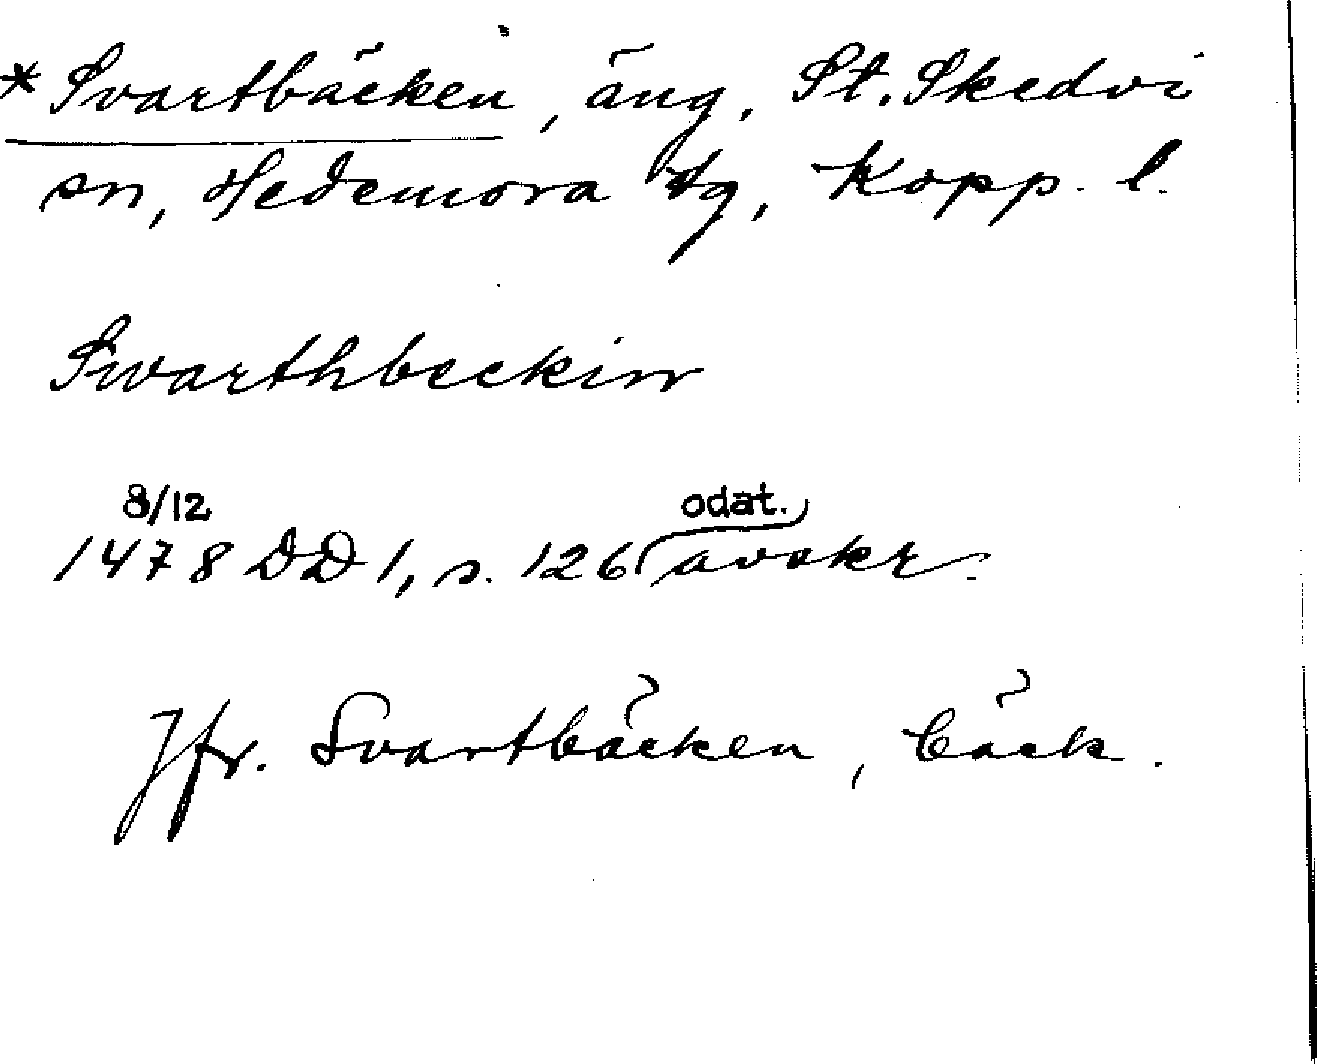 *Svartbäcken, äng, St. Skedvi
sn, Hedemora tg, Kopp. l.
Swarthbeckin
8/12 odat.
1478 DD 1, s. 126 avskr.
Jfr. Svartbäcken, bäck.